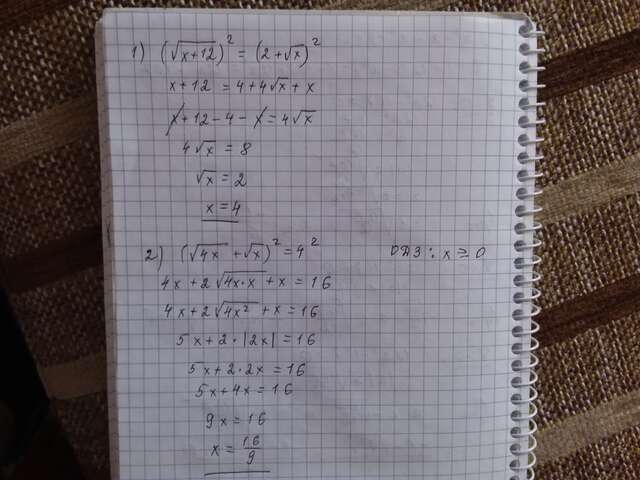 1) (√x+12)² = (2+√x)²
x+12 = 4+4√x+x
x+12-4-x=4√x
4√x = 8
√x = 2
x = 4
2) (√4x + √x)² = 4² ОДЗ: x ≥ 0
4x+2√4x·x + x = 16
4x+2√4x² + x = 16
5x+2·|2x| = 16
5x+2·2x = 16
5x+4x = 16
9x = 16
x = 16/9